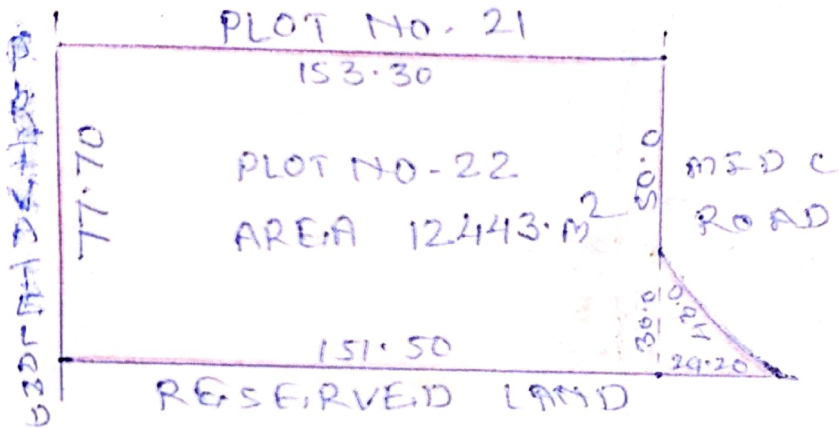 PLOT NO. 21
153.30
77.70
PLOT NO-22
AREA 12443.M2
50.0
MIDC
ROAD
30.0
29.20
151.50
RESERVED LAND